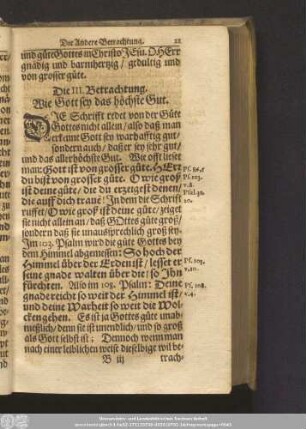 Der Andere Betrachtung. 21
und güte Gottes in Christo JEsu. D. HErr
gnädig und barmhertzig / gedultig und
von grosser güte.
Die III. Betrachtung.
Wie Gott sey das höchste Gut.
DIE Schrifft redet von der Güte
Gottes nicht allein / also daß man
erkenne Gott sey warhafftig gut /
sondern auch / daß er sey sehr gut /
und das allerhöchste Gut. Wie offt lieset
man: Gott ist von grosser güte. HErr
du bist von grosser güte. O wie groß
ist deine güte / die du erzeigest denen /
die auff dich traue! In dem die Schrift
ruffet / O wie groß ist deine güte / zeiget
sie nicht allein an / daß GOttes güte groß /
sondern daß sie unaussprechlich groß sey.
Im 103. Psalm wird die güte Gottes bey
dem Himmel abgemessen: So hoch der
Himmel über der Erden ist / lesset er
seine gnade walten über die / so Ihn
fürchten. Also im 108. Psalm: Deine
gnade reicht so weit der Himmel ist /
und deine Warheit so weit die Wol-
cken gehen. Es ist ja Gottes güte unab-
meßlich / denn sie ist unendlich / und so groß
als Gott selbst ist; Dennoch wenn man
nach einer leiblichen weise dieselbige wil be-
B iij trach-
Ps. 103.
v. 8.
Ps. 103.
v. 10.
Ps. 108.
v. 4.